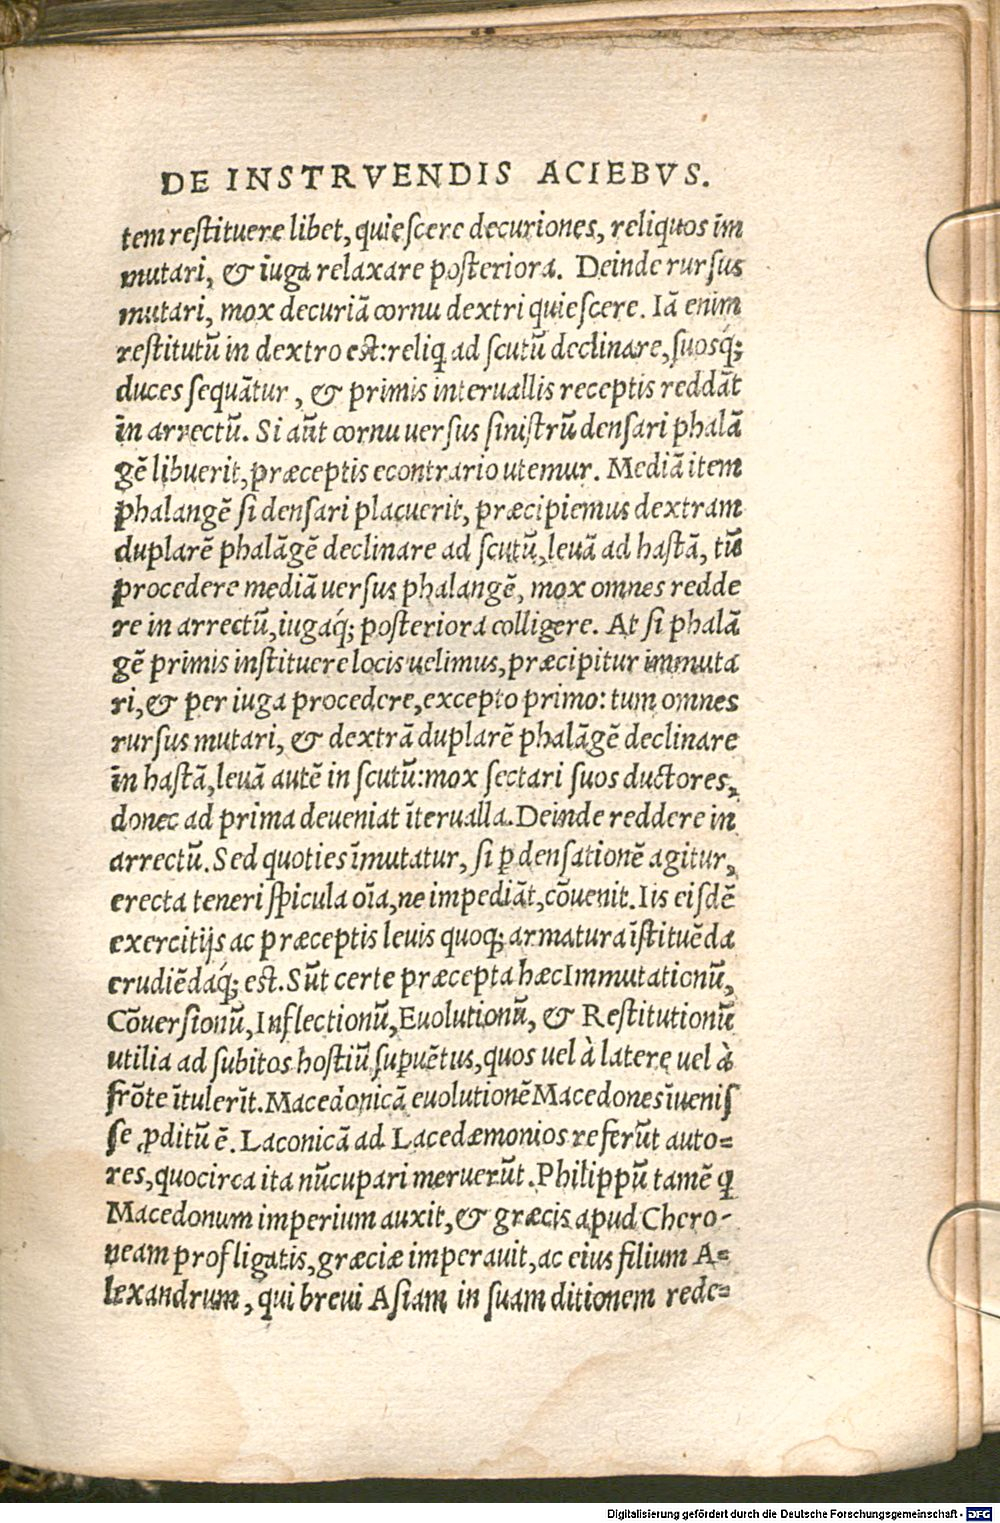 DE INSTRVENDIS ACIEBVS.
tem restituere libet, quiescere decuriones, reliquos im̄
mutari, & iuga relaxare posteriora. Deinde rursus
mutari, mox decuriā cornu dextri quiescere. Iā enim
restitutū in dextro est: reliq̄ ad scutū declinare, suosq́;
duces sequātur, & primis interuallis receptis reddāt
īn arrectū. Si aūt cornu uersus sinistrū densari phalā
gē libuerit, præceptis econtrario utemur. Mediā item
phalangē si densari placuerit, præcipiemus dextram
duplarē phalāgē declinare ad scutū, leuā ad hastā, tū
procedere mediā uersus phalangē, mox omnes redde
re in arrectū, iugaq́; posteriora colligere. At si phalā
gē primis instituere locis uelimus, præcipitur immuta
ri, & per iuga procedere, excepto primo: tum omnes
rursus mutari, & dextrā duplarē phalāgē declinare
īn hastā, leuā autē in scutū: mox sectari suos ductores,
donec ad prima deueniat īterualla. Deinde reddere in
arrectū. Sed quoties īmutatur, si ꝑ densationē agitur,
erecta teneri spicula oīa, ne impediāt, cōuenit. Iis eisdē
exercitijs ac præceptis leuis quoq; armatura īstituēda
erudiēdaq́; est. Sūt certe præcepta hæc Immutationū,
Cōuersionū, Inflectionū, Euolutionū, & Restitutionū
utilia ad subitos hostiū suꝑuētus, quos uel à latere uel à
frōte ītulerīt. Macedonicā euolutionē Macedones īuenis
se ꝓditū ē. Laconicā ad Lacedæmonios referūt auto=
res, quocirca ita nūcupari meruerūt. Philippū tamē q̄
Macedonum imperium auxit, & græcis apud Chero-
neam profligatis, græciæ imperauit, ac eius filium A=
lexandrum, qui breui Asiam in suam ditionem rede=
Digitalisierung gefördert durch die Deutsche Forschungsgemeinschaft - DFG